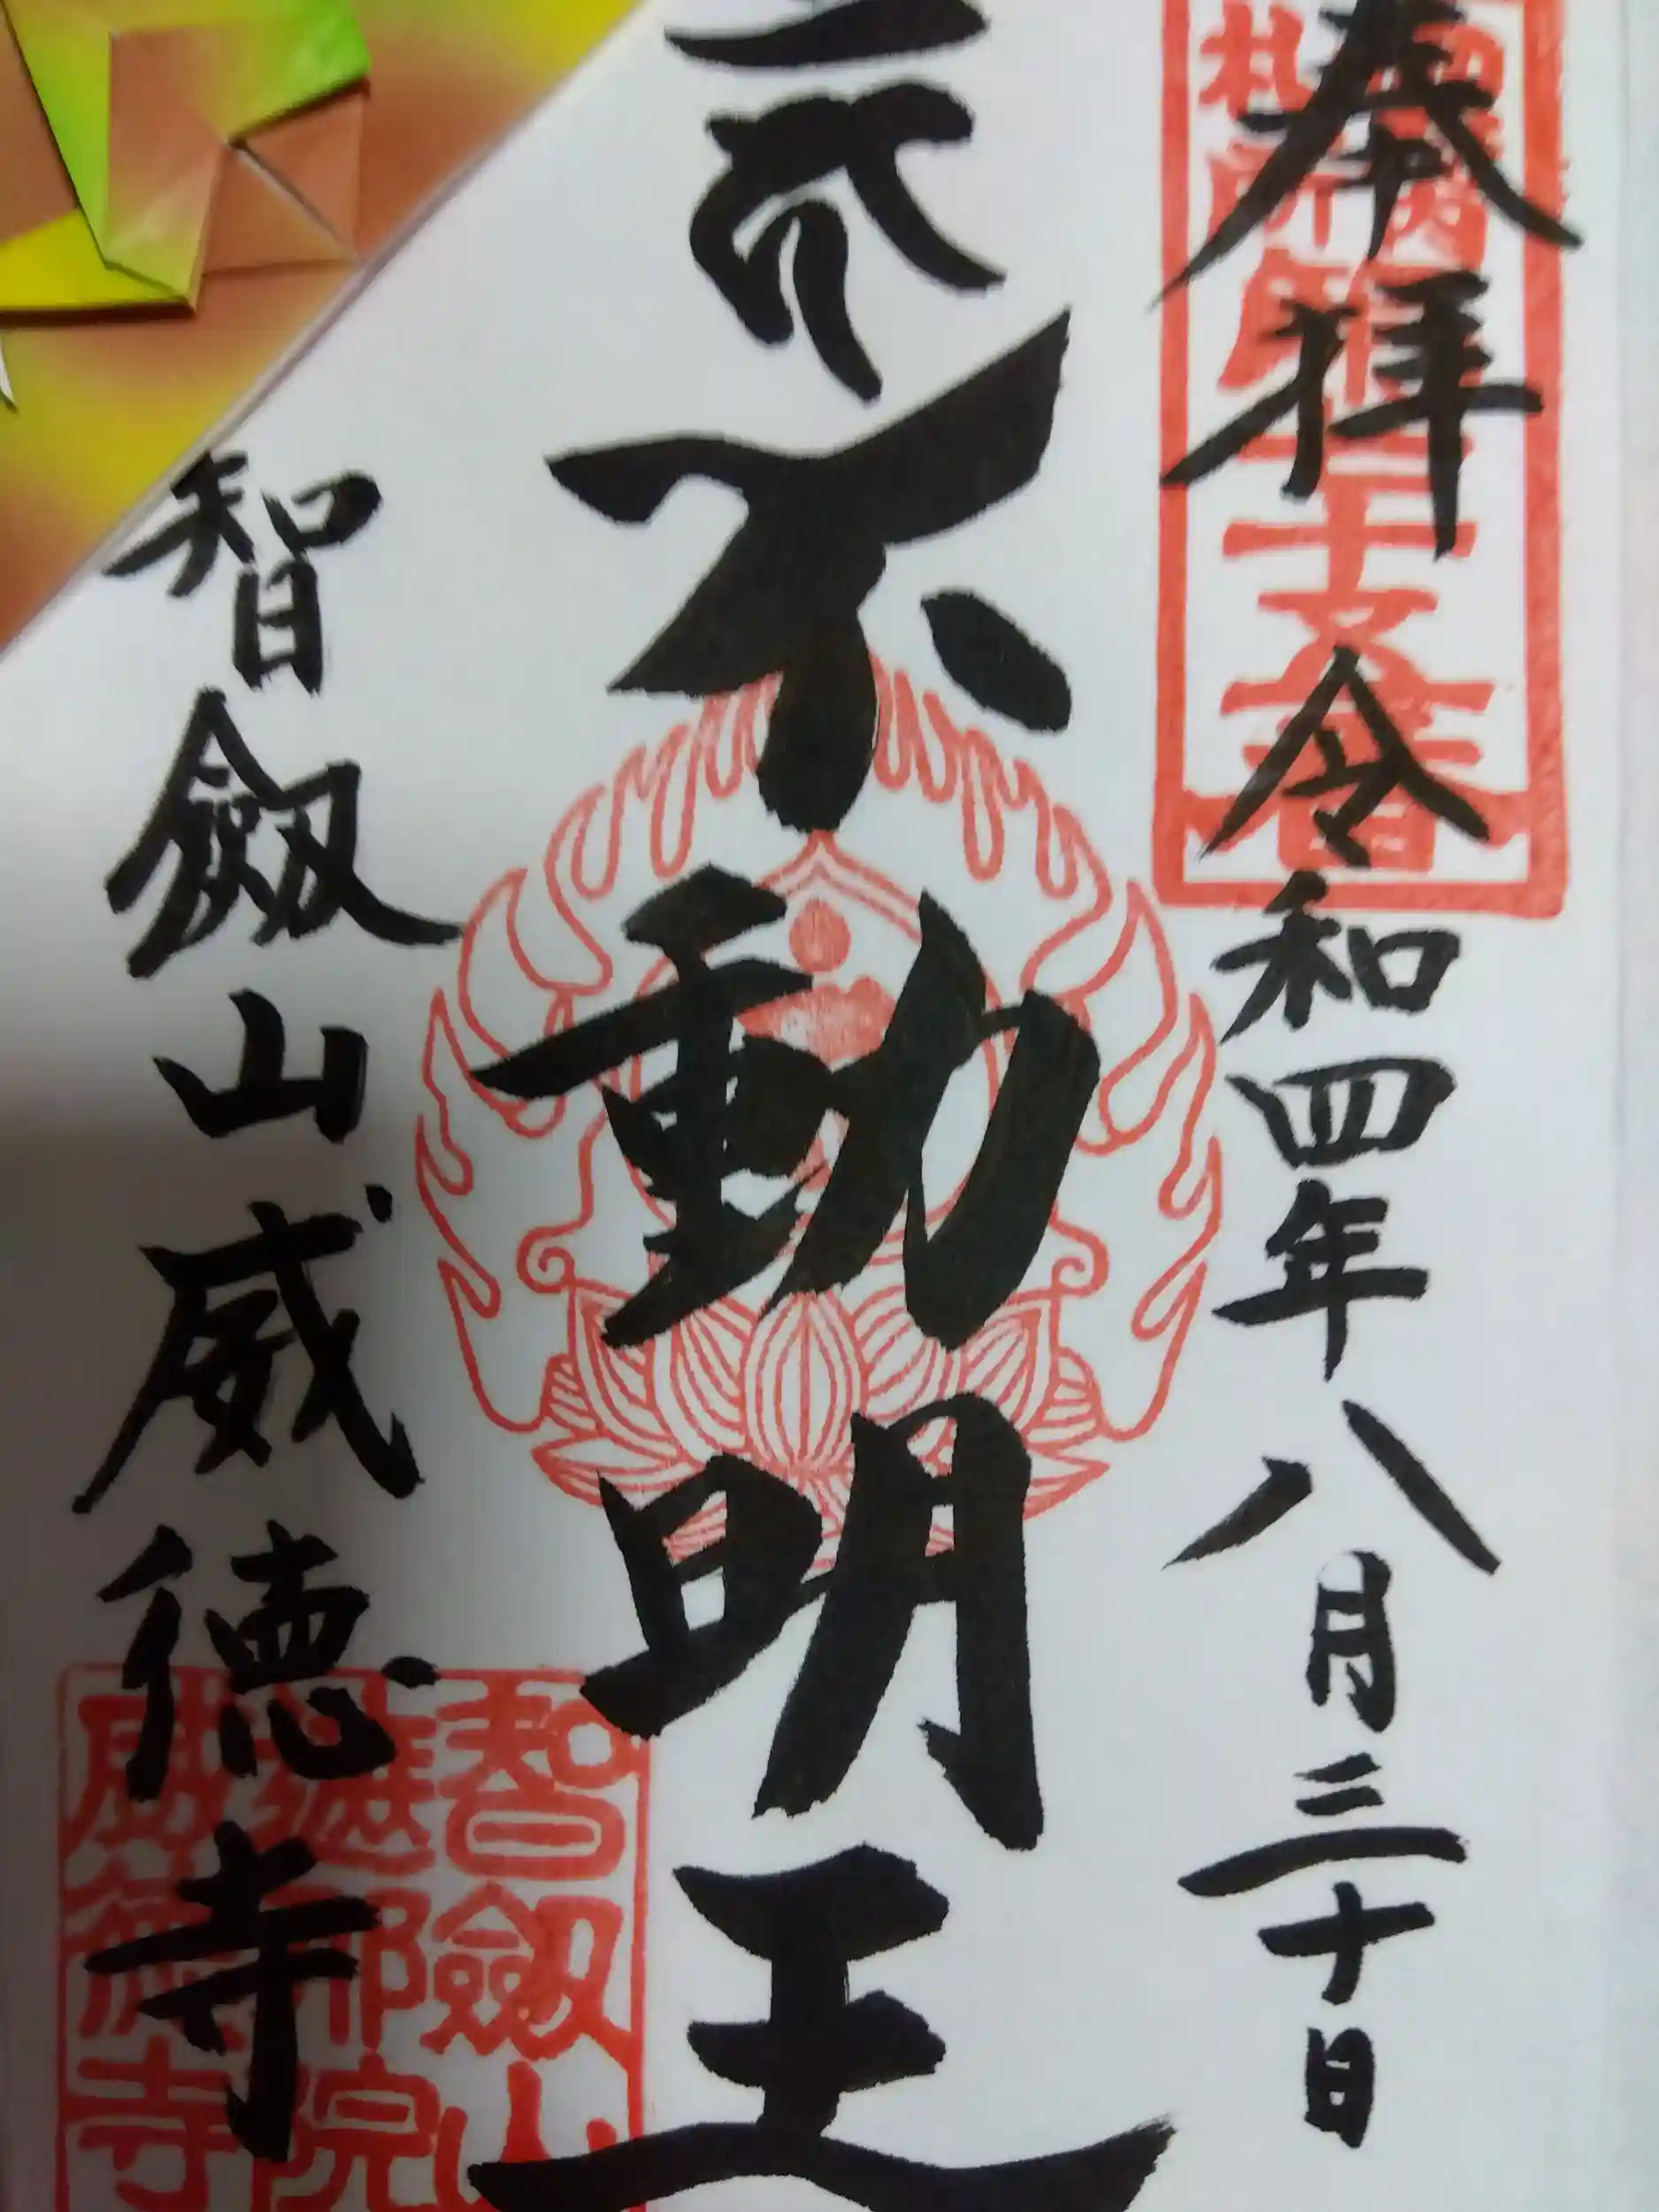 奉拝
令和四年八月三十日
不動明王
智劔山威徳寺
智劔山
遮那院
威徳寺